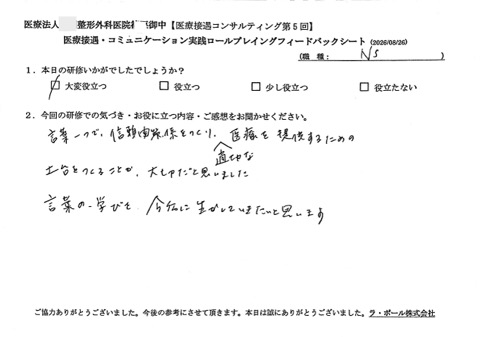 医療法人 整形外科医院様御中【医療接遇コンサルティング第5回】
医療接遇・コミュニケーション実践ロールプレイングフィードバックシート (2026/08/26)
(職種: Ns )
1．本日の研修いかがでしたでしょうか？
☑ 大変役立つ □ 役立つ □ 少し役立つ □ 役立たない
2．今回の研修での気づき・お役に立つ内容・ご感想をお聞かせください。
言葉一つで、信頼関係をつくり、医療を提供するための
適切な
土台をつくることが、大切だと思いました
言葉の学びを、今後に生かしていきたいと思います
ご協力ありがとうございました。今後の参考にさせて頂きます。本日は誠にありがとうございました。ラ・ポール株式会社